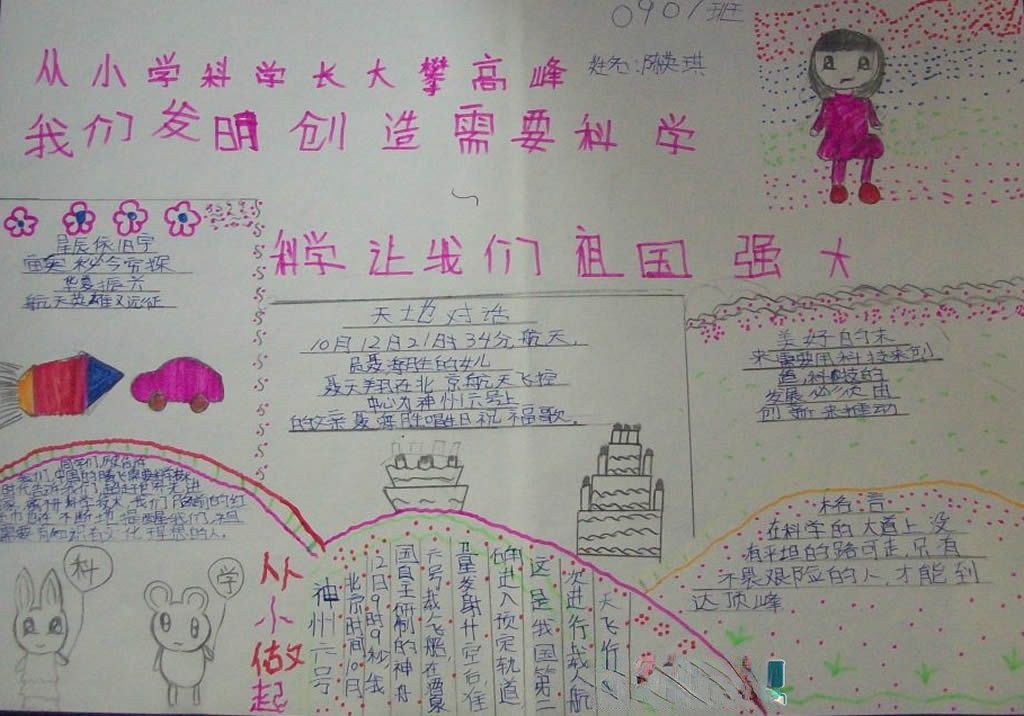 0901班
从小学科学长大攀高峰
姓名:陈英琪
我们发明创造需要科学
科学让我们祖国强大
星辰依旧宇
宙奥秘今穷探
华夏振兴
航天英雄又远征
天地对话
10月12日21时34分,航天
员聂海胜的女儿
聂天翔在北京航天飞控
中心为神州六号上
的父亲聂海胜唱生日祝福歌。
美好的未
来需要用科技来创
造,科技的
发展必须由
创新来推动
同学们
我们,中国的腾飞需要科学
祖
国需要有知识有文化有理想的人。
格言
在科学的大道上没
有平坦的路可走,只有
不畏艰险的人,才能到
达顶峰
科
学
从小做起
神州六号
北京时间10月
12日9时9秒,我
国自主研制的神舟
六号载人飞船,在酒泉
卫星发射升空后准
确进入预定轨道
这是我国第二
次进行载人航
天飞行。